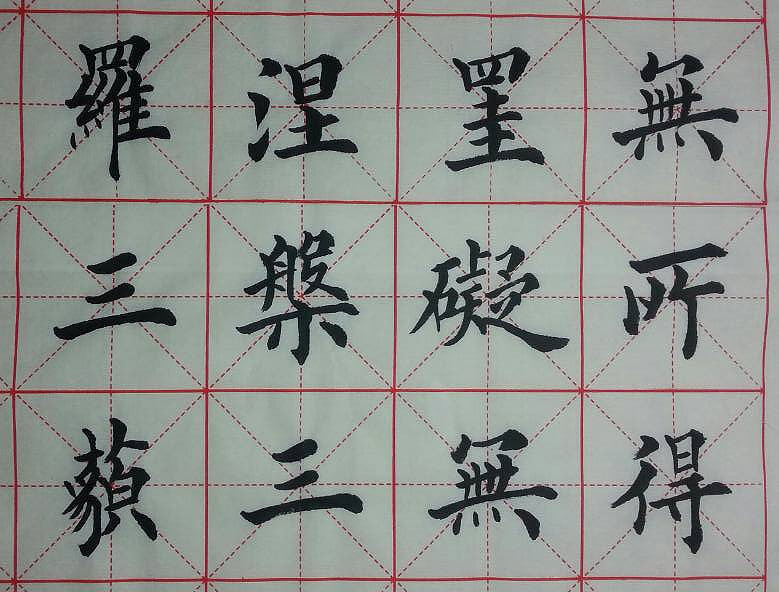 無所得
罣礙無
涅槃三
羅三藐